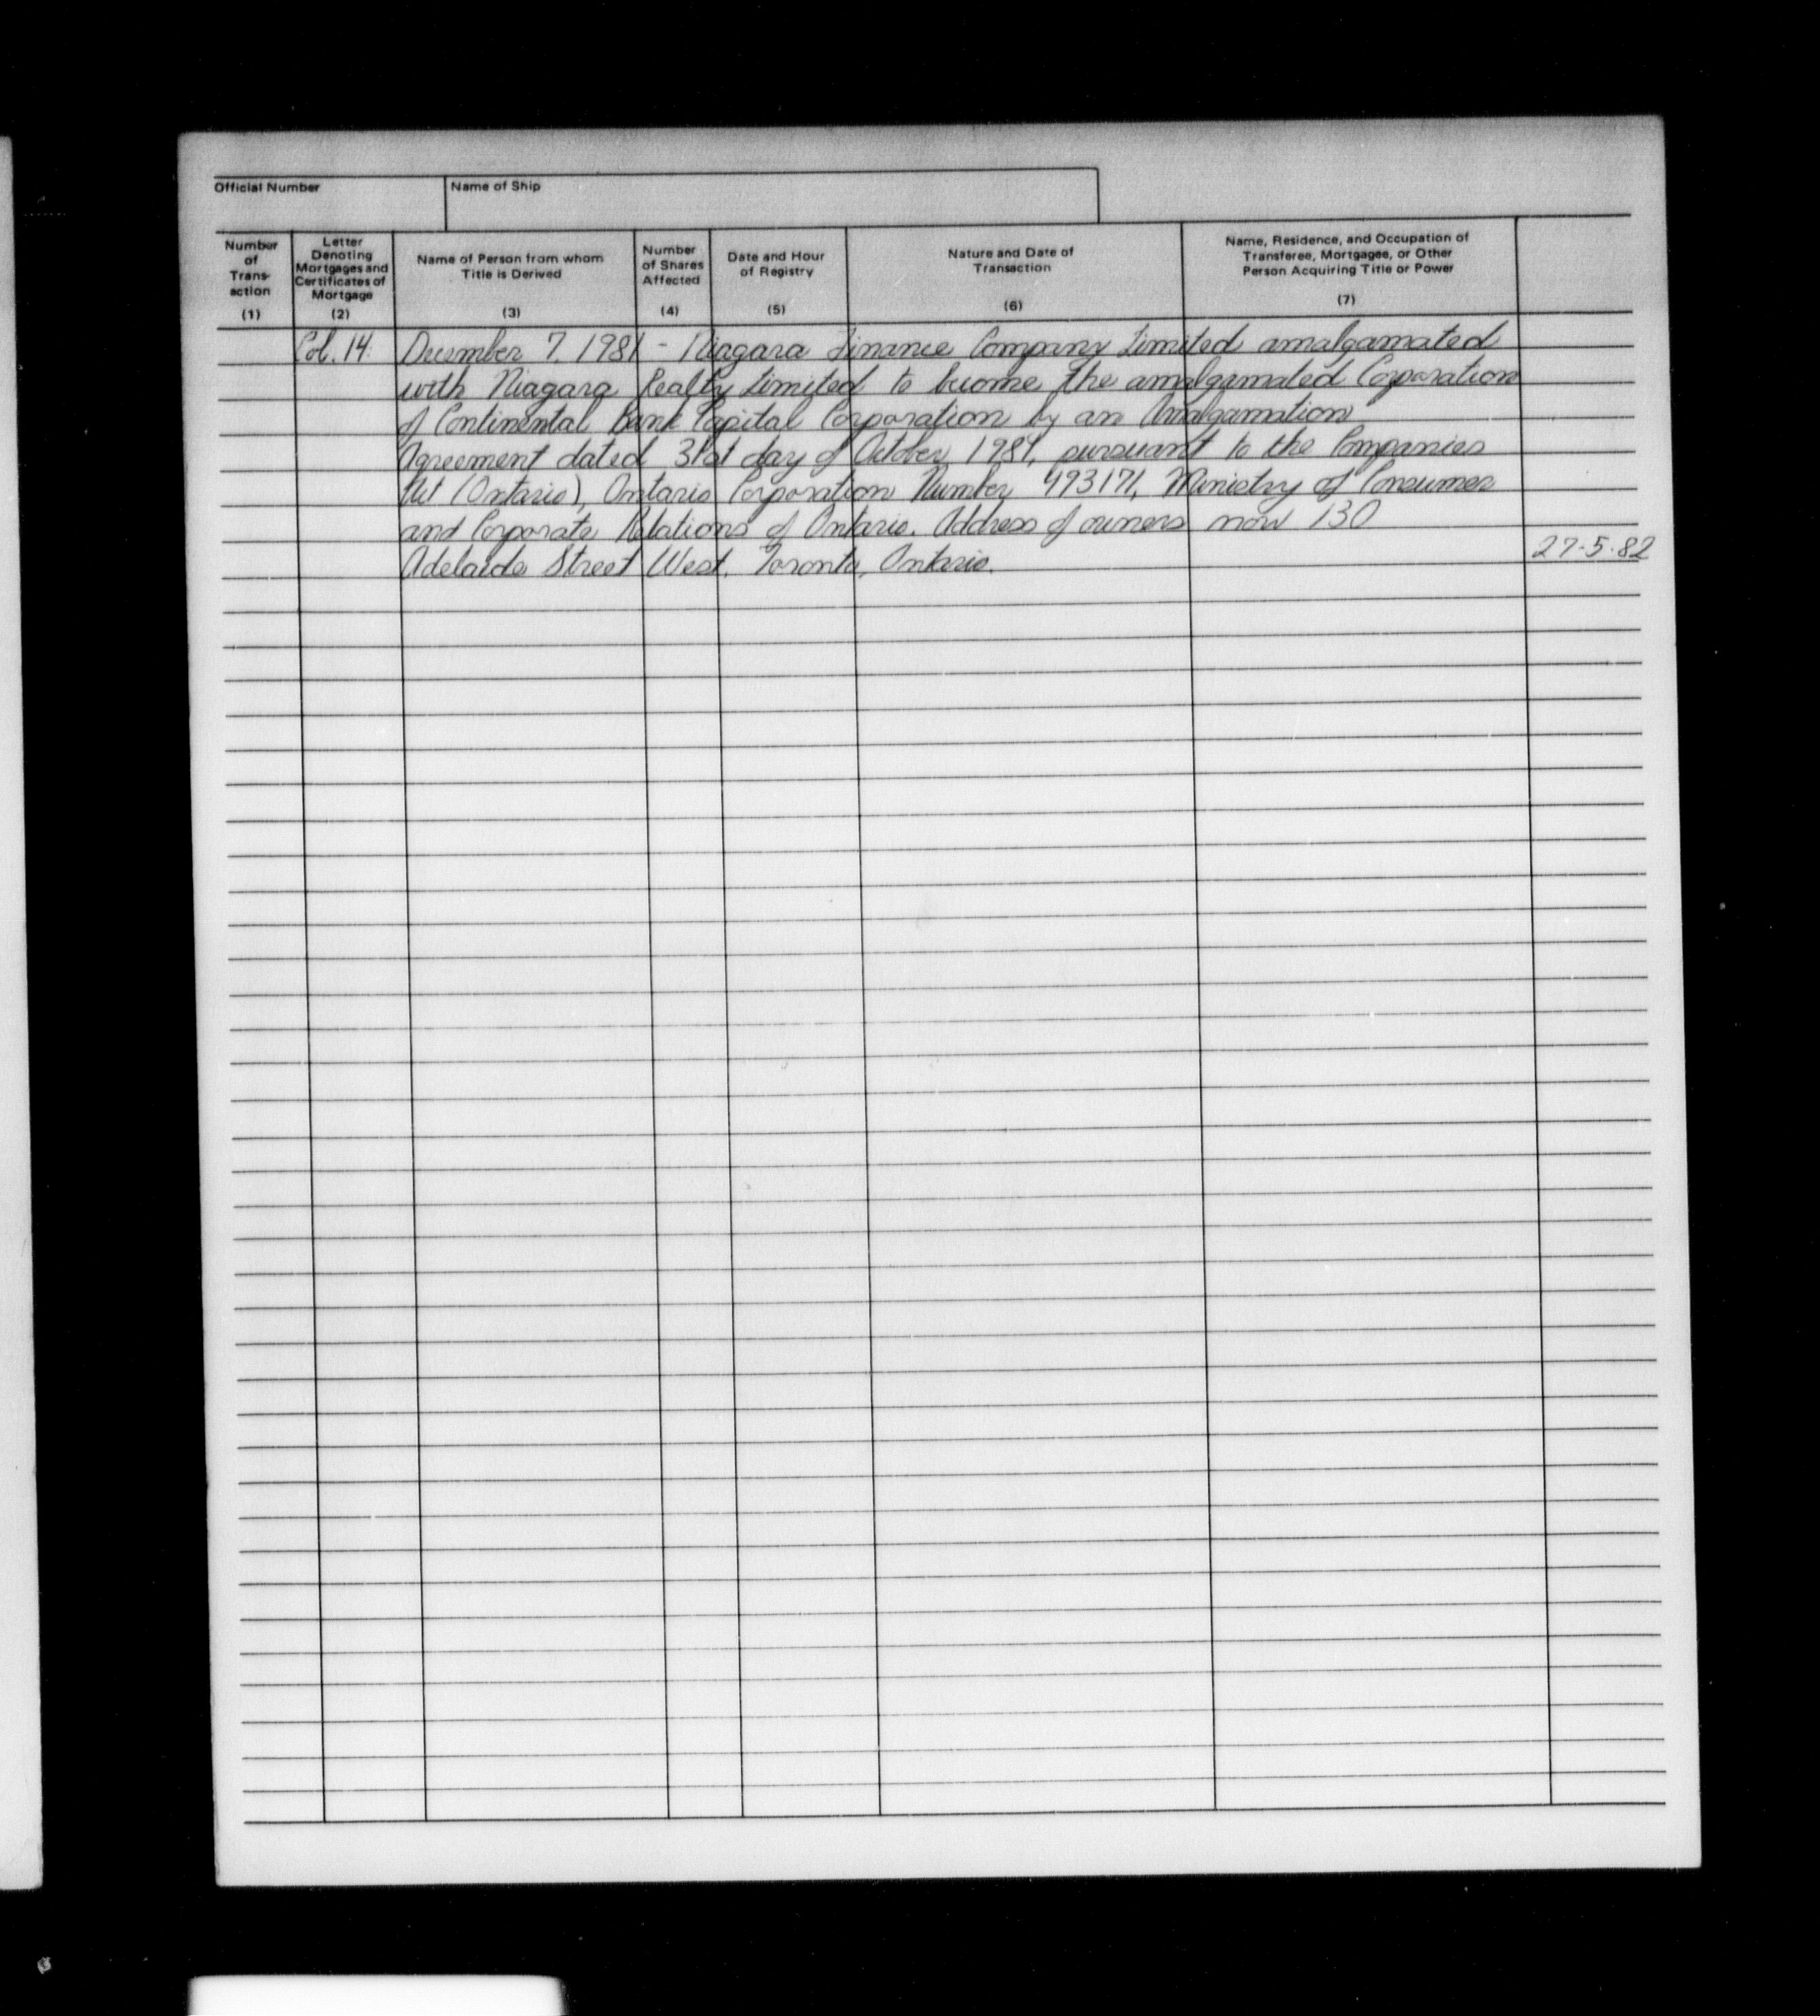 Official Number
Name of Ship
Number of Trans-action (1)
Letter Denoting Mortgages and Certificates of Mortgage (2)
Name of Person from whom Title is Derived (3)
Number of Shares Affected (4)
Date and Hour of Registry (5)
Nature and Date of Transaction (6)
Name, Residence, and Occupation of Transferee, Mortgagee, or Other Person Acquiring Title or Power (7)
Col. 14: December 7, 1981 - Niagara Finance Company Limited amalgamated
with Niagara Realty Limited to become the amalgamated Corporation
of Continental Bank Capital Corporation by an Amalgamation
Agreement dated 31st day of October 1981, pursuant to the Companies
Act (Ontario), Ontario Corporation Number 493171, Ministry of Consumer
and Corporate Relations of Ontario. Address of owners now 130
Adelaide Street West, Toronto, Ontario. 27-5-82